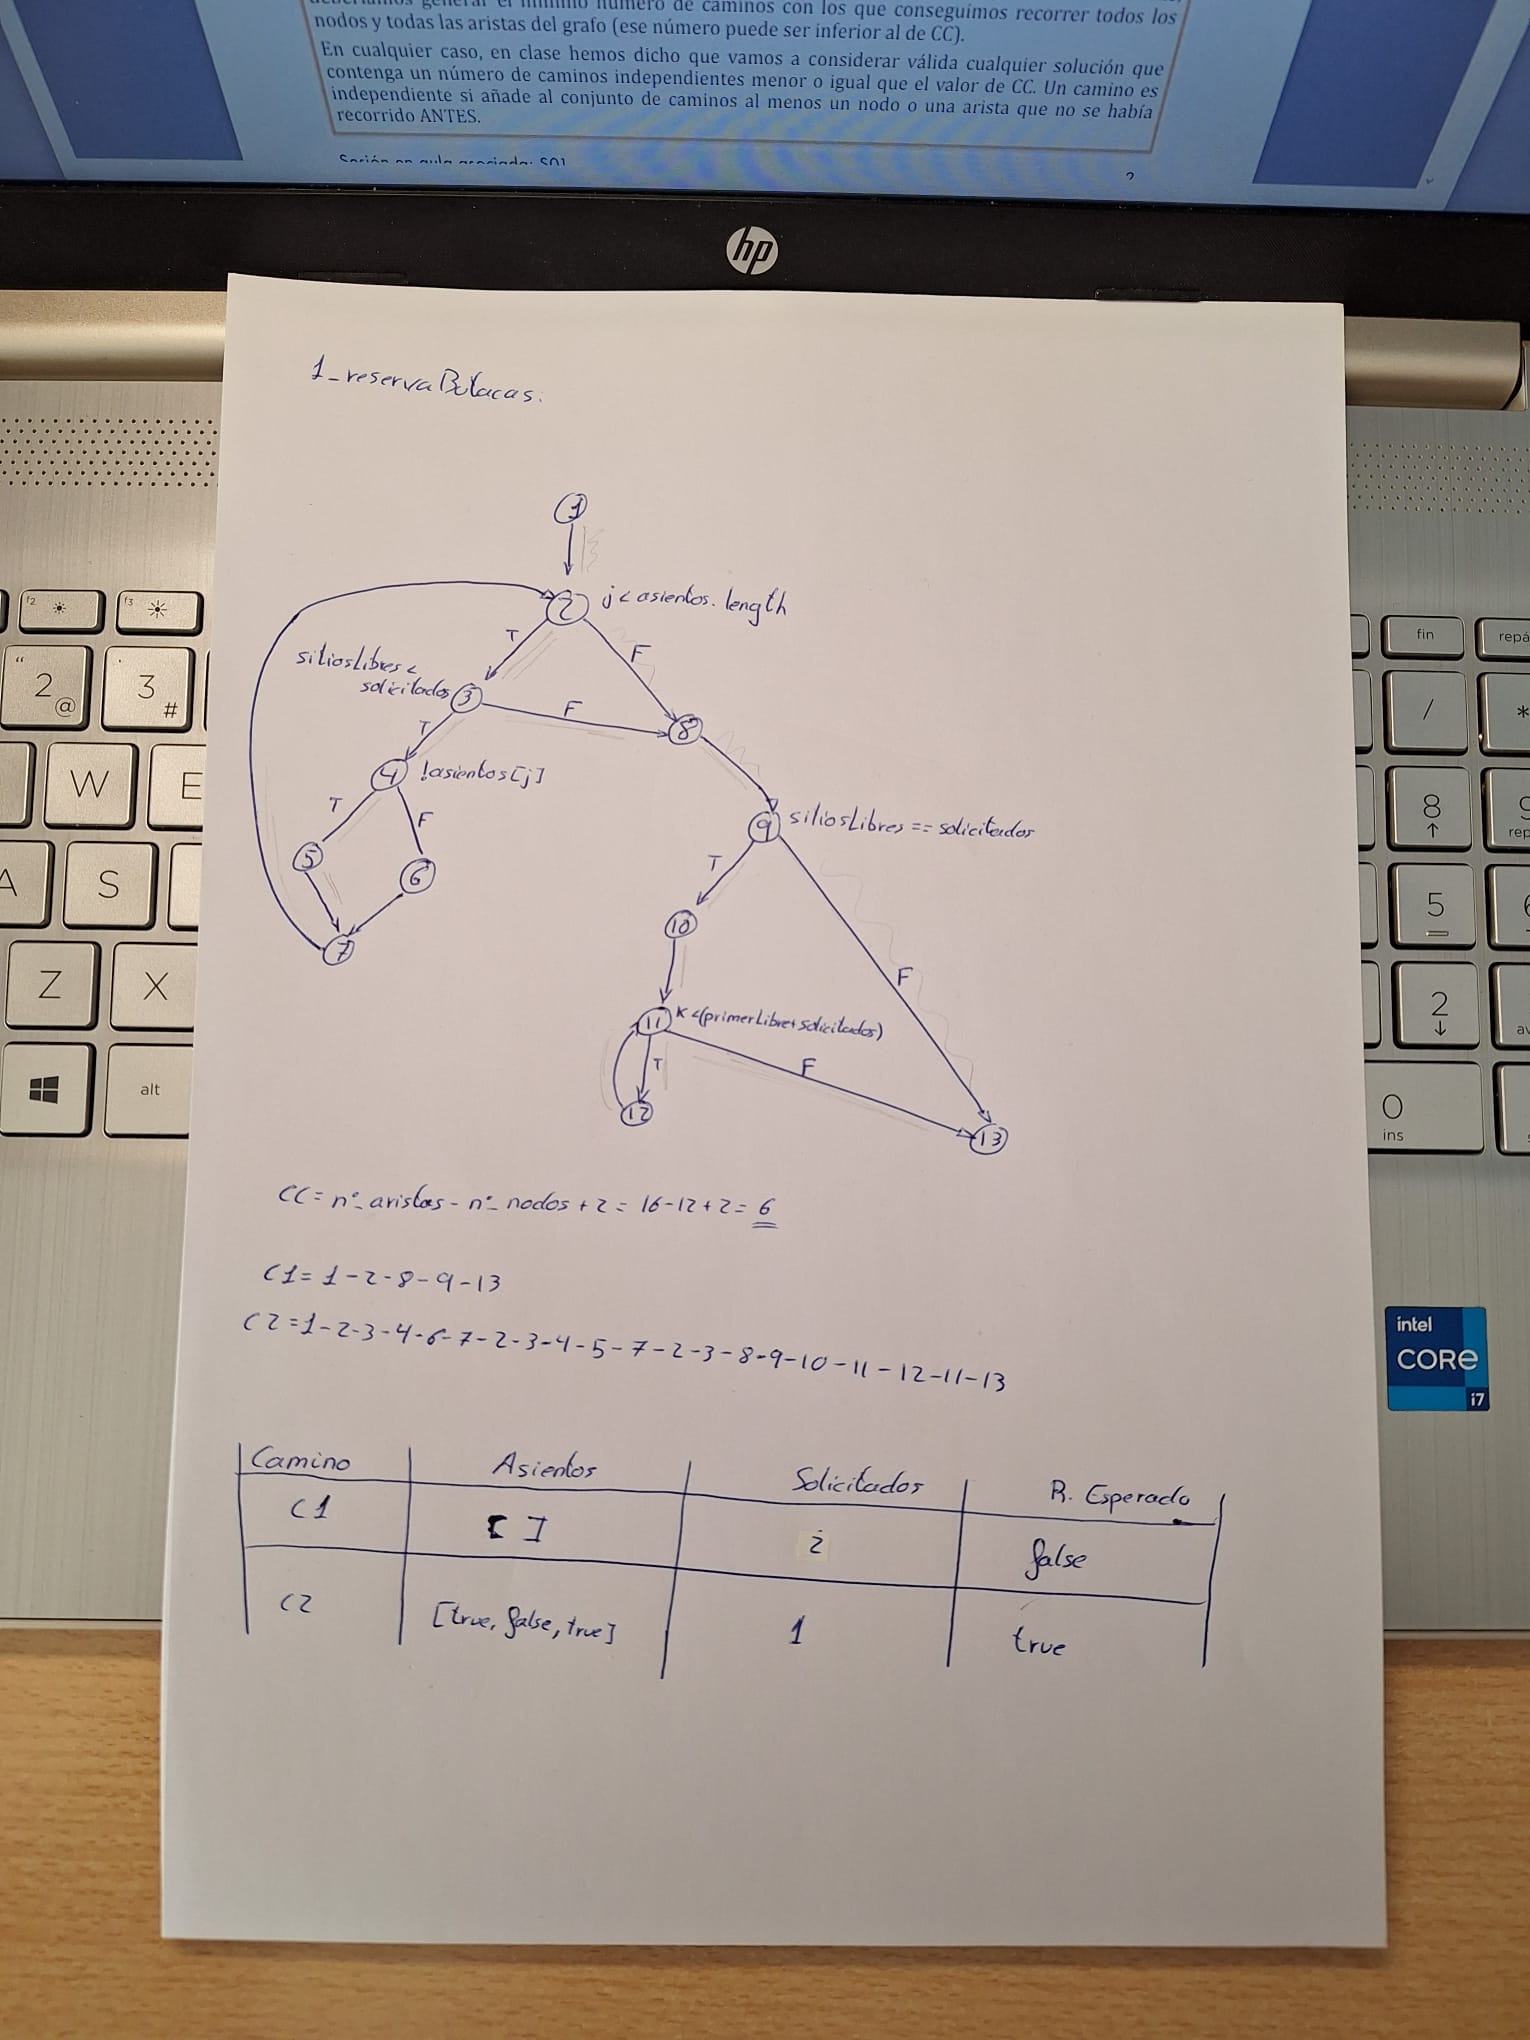 nodos y todas las aristas del grafo (ese número puede ser inferior al de CC).
En cualquier caso, en clase hemos dicho que vamos a considerar válida cualquier solución que
contenga un número de caminos independientes menor o igual que el valor de CC. Un camino es
independiente si añade al conjunto de caminos al menos un nodo o una arista que no se había
recorrido ANTES.
hp
1_reservaButacas.
1
2 j<asientos.length
T
F
sitiosLibres<
solicitados 3
F
8
T
4 !asientos[j]
T
F
5
6
7
9 sitiosLibres == solicitados
T
F
10
11 K<(primerLibre+solicitados)
T
F
12
13
CC= nº_aristas - nº_nodos + 2 = 16-12+2= 6
C1= 1-2-8-9-13
C2=1-2-3-4-6-7-2-3-4-5-7-2-3-8-9-10-11-12-11-13
Camino Asientos Solicitados R. Esperado
C1 [ ] 2 false
C2 [true, false, true] 1 true
f2
f3
" 2 @
· 3 #
W
E
A
S
Z
X
alt
fin
repá
/
*
8
9
rep
5
6
2
av
0
ins
intel
CORE
i7